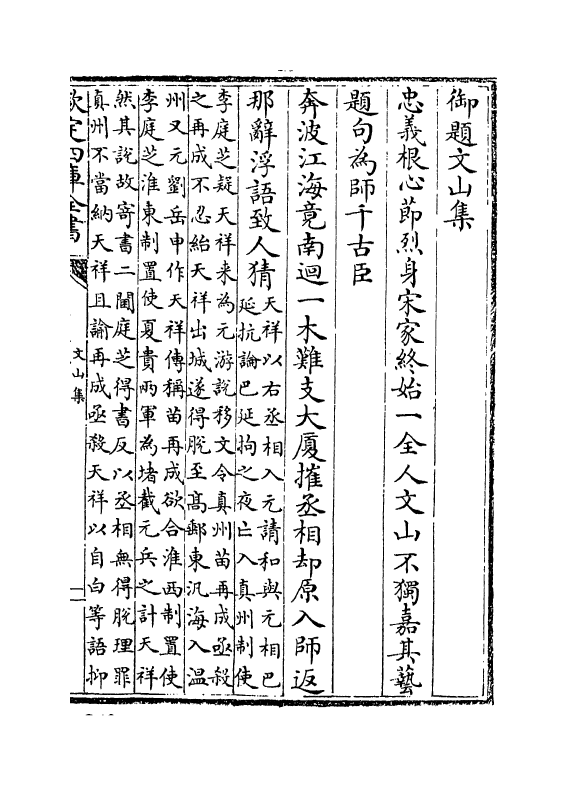 御題文山集
忠義根心節烈身宋家終始一全人文山不獨嘉其藝
題句為師千古臣
奔波江海竟南迴一木難支大厦摧丞相却原入師返
那辭浮語致人猜
天祥以右丞相入元請和與元相巴
延抗論巴延拘之夜亡入真州制使
李庭芝疑天祥来為元游說移文令真州苗再成亟殺
之再成不忍紿天祥出城遂得脫至髙郵東汎海入温
州又元劉岳申作天祥傳稱苗再成欲合淮西制置使
李庭芝淮東制置使夏貴兩軍為堵截元兵之計天祥
然其說故寄書二閫庭芝得書反以丞相無得脫理罪
真州不當納天祥且諭再成亟殺天祥以自白等語抑
欽定四庫全書
文山集
一